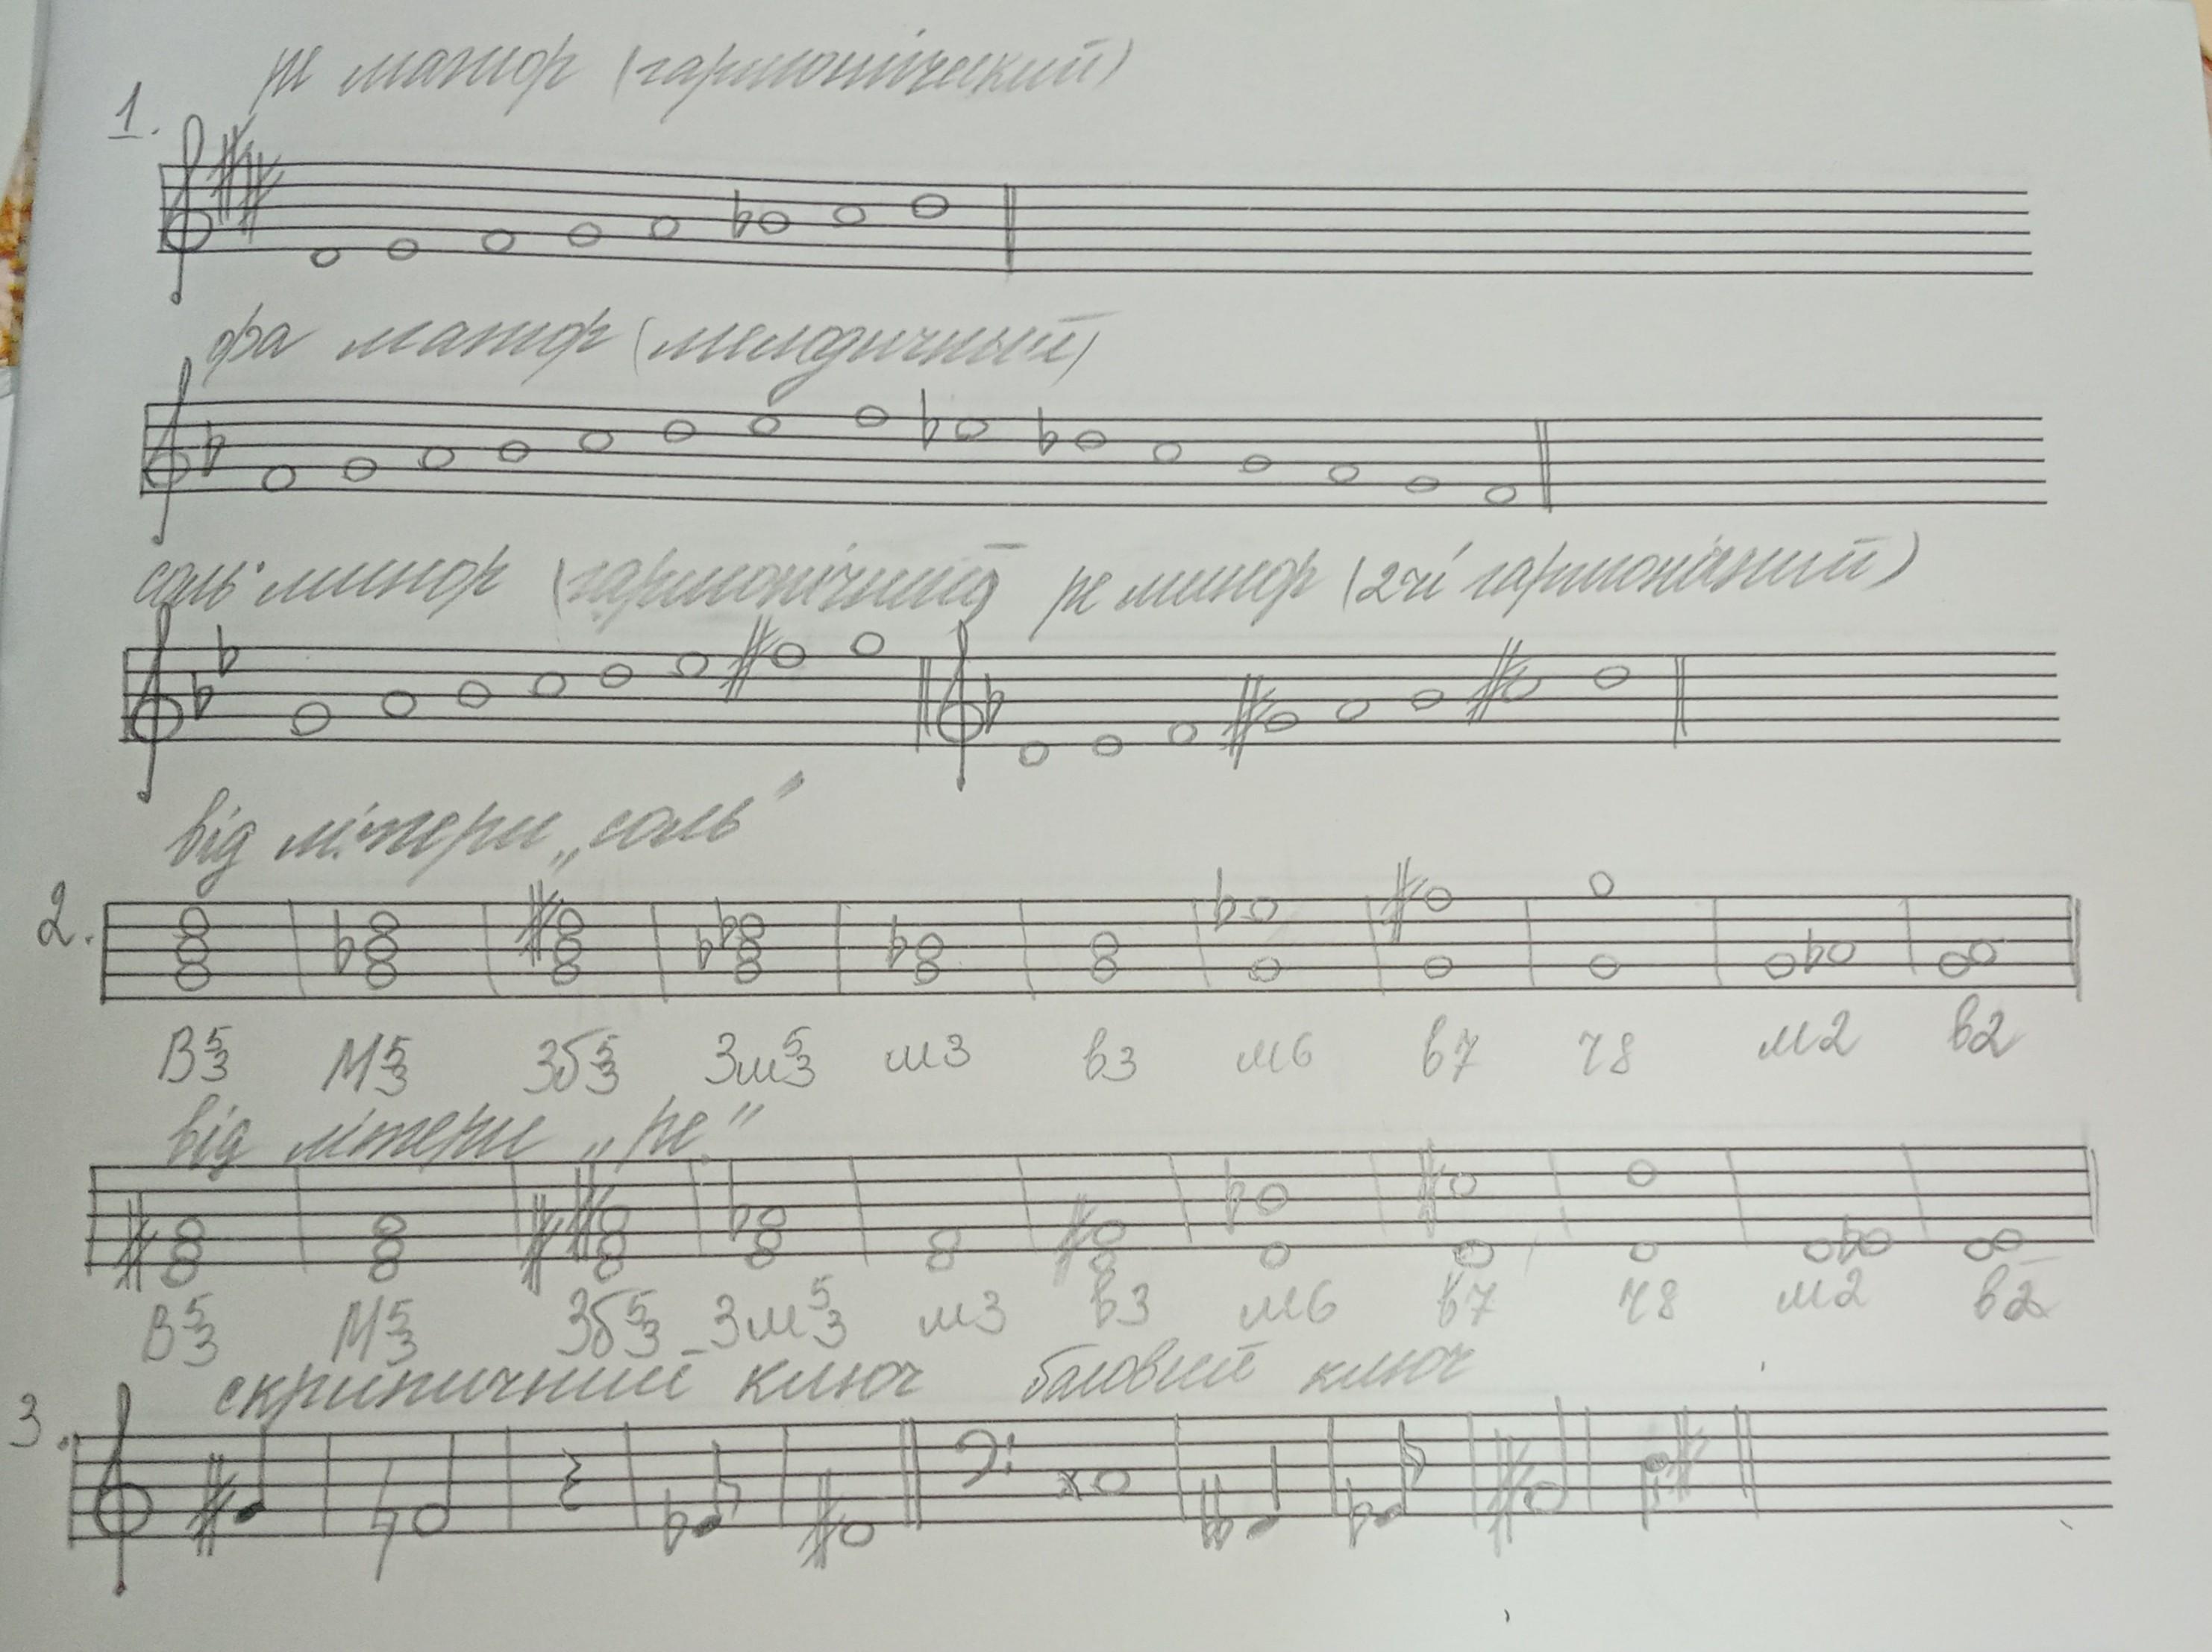 ре мажор (гармонический)
1.
фа мажор (мелодичный)
соль минор (гармонічний) ре минор (2чі гармонічний)
від літери „соль"
2.
В5/3 М5/3 Зб5/3 Зм5/3 м3 в3 м6 в7 ч8 м2 в2
від літери „ре"
В5/3 М5/3 Зб5/3 Зм5/3 м3 в3 м6 в7 ч8 м2 в2
скрипичний ключ басовий ключ
3.